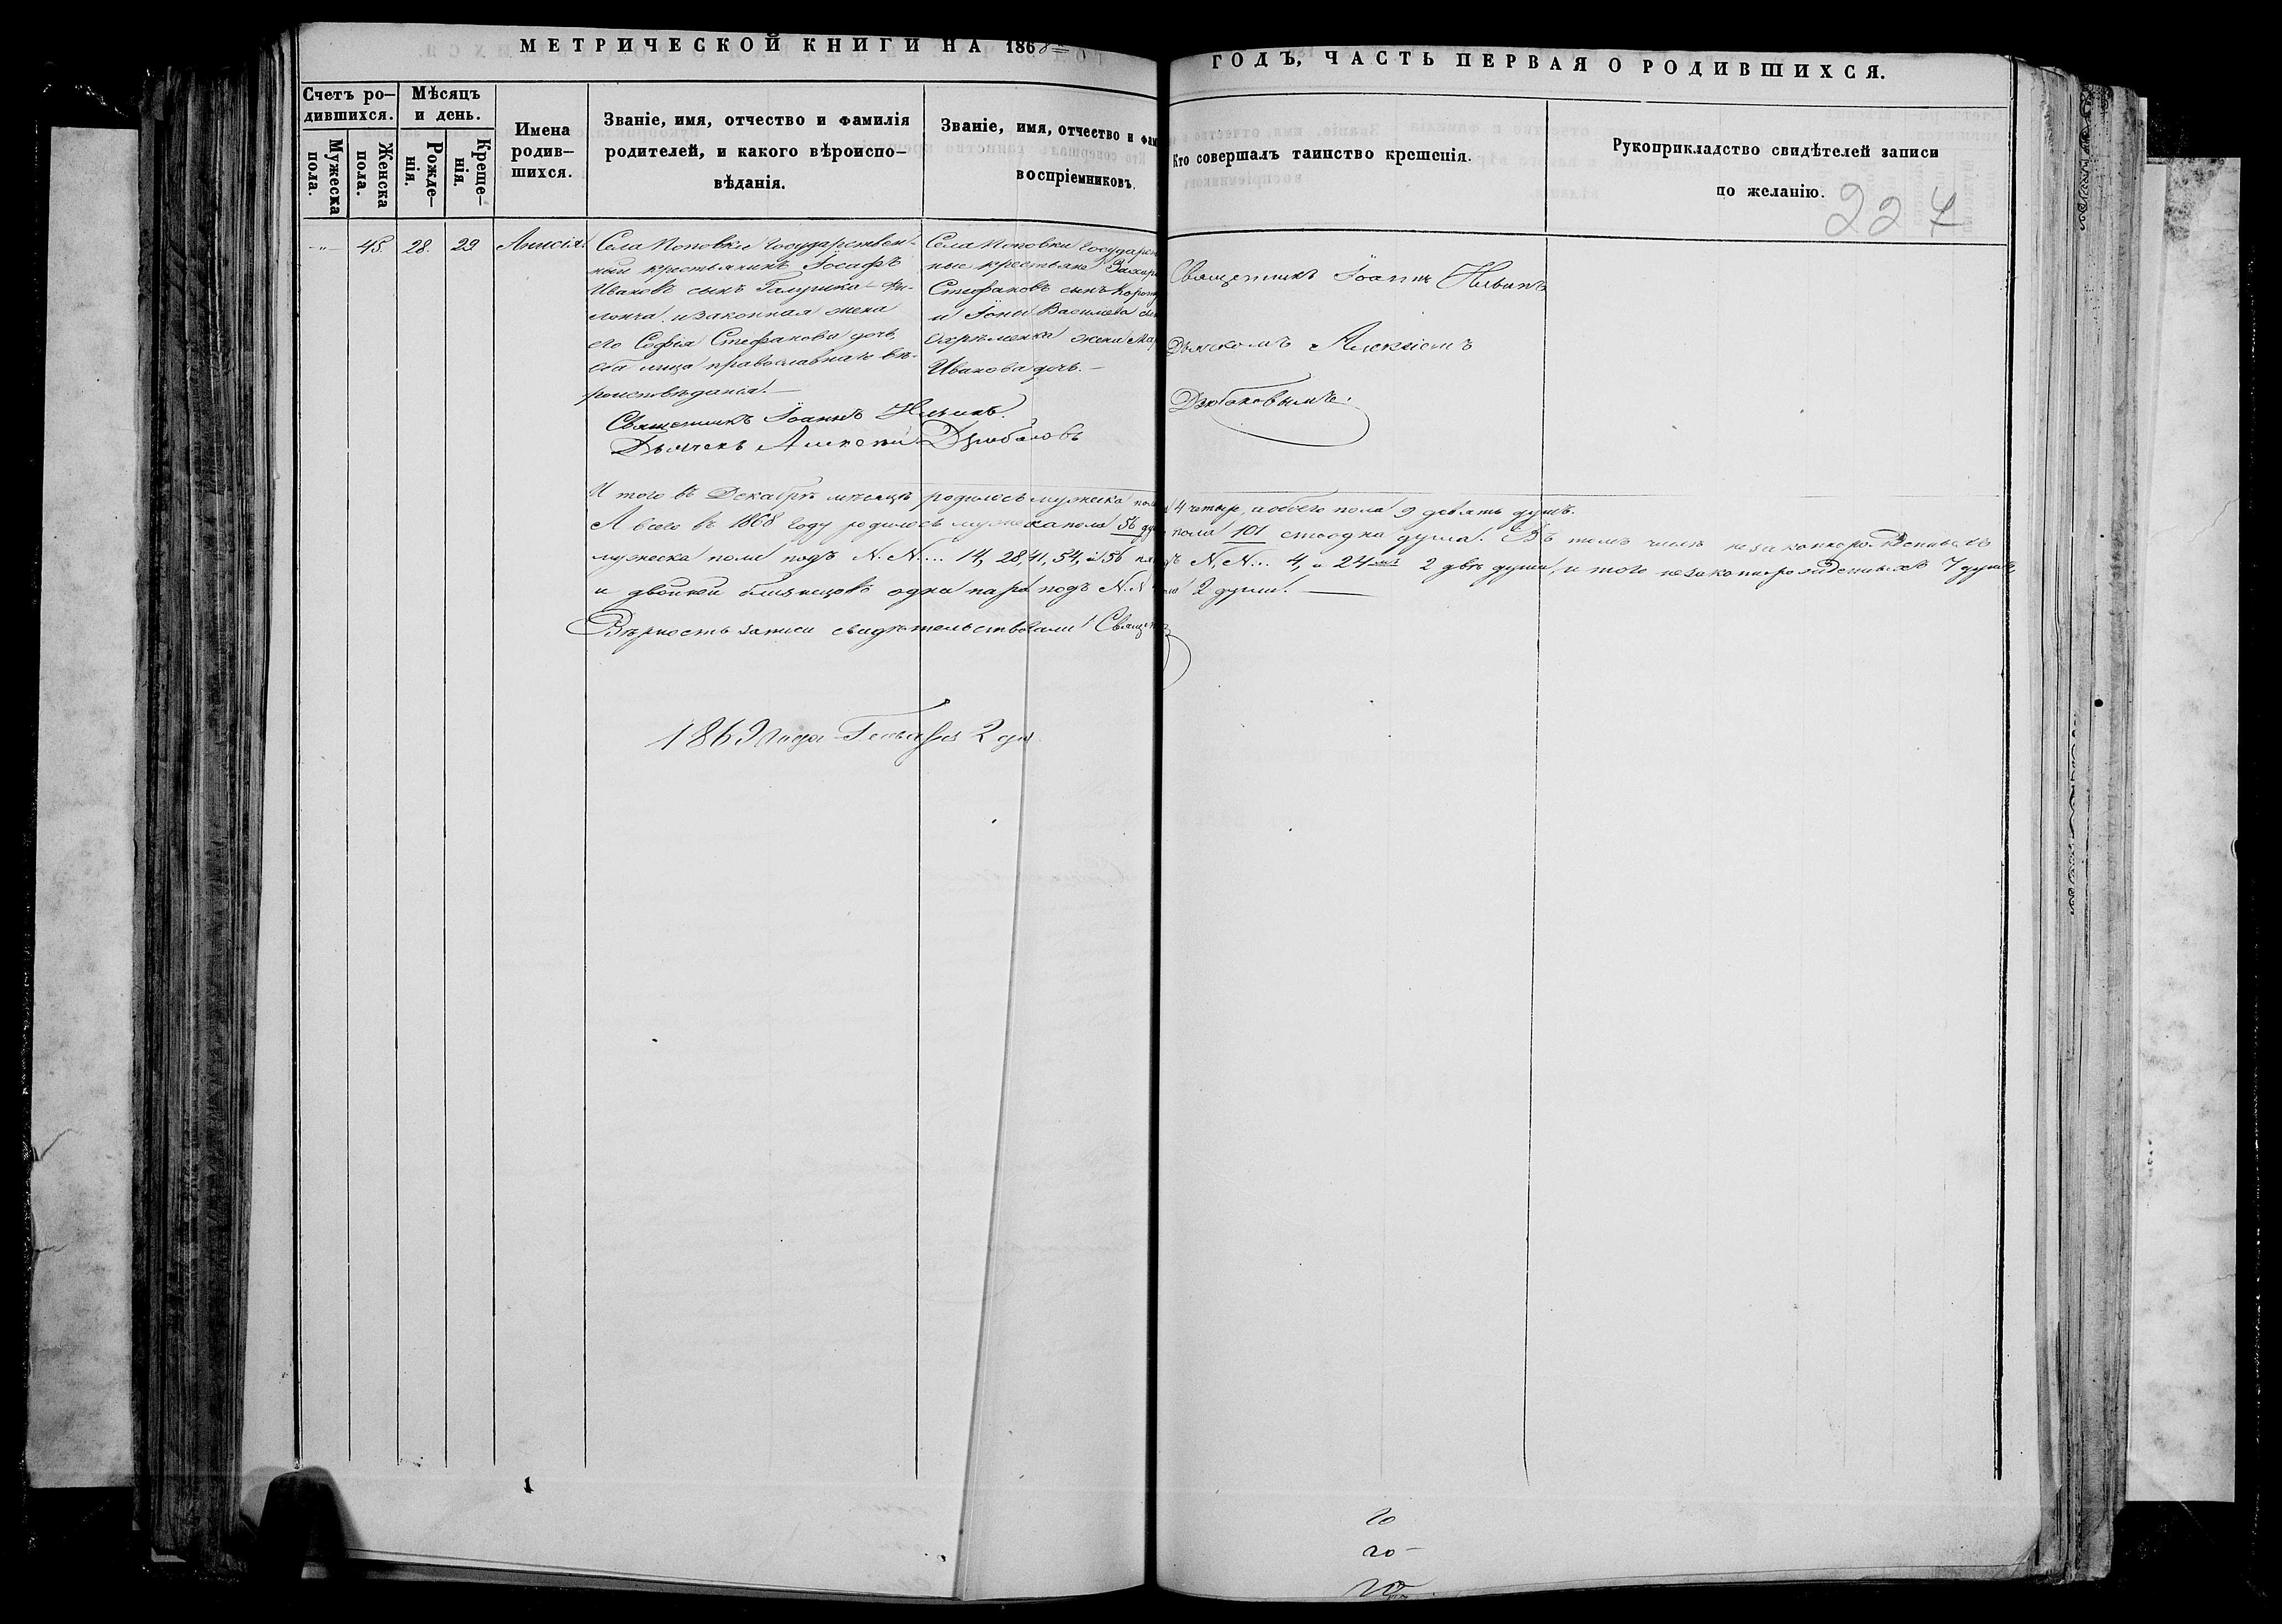 МЕТРИЧЕСКОЙ КНИГИ НА 1868
ГОДЪ, ЧАСТЬ ПЕРВАЯ О РОДИВШИХСЯ.
Счетъ ро–
дившихся.
Мужеска
пола.
Женска
пола.
Мѣсяцъ
и день.
Рожде–
нія.
Креще–
нія.
Имена
родив–
шихся.
Званіе, имя, отчество и фамилія
родителей, и какого вѣроиспо–
вѣданія.
Званіе, имя, отчество и фам
воспріемниковъ.
Кто совершалъ таинство крещенія.
Рукоприкладство свидѣтелей записи
по желанію.
227
45. 28. 29 Анисія.
Села Поповки Государствен-
ный крестьянинъ Іосафъ
Ивановъ сынъ
и законная жена
его Софія Стефанова дочь,
оба лица православнаго вѣ-
роисповѣданія.
Села Поповки Государст
ные крестьяне Захар
Стефановъ сынъ
и Іоны Васильева сын
жена Мар
Иванова дочь.
Священникъ Іоаннъ
Дьячкомъ Алексіемъ
Дзюбановымъ.
Священникъ Іоаннъ
Дьячекъ Алексѣй
И того въ Декабрѣ мѣсяцѣ родилось мужеска пола 4 четыр, а обоего пола 9 девять душъ.
А всего въ 1868 году родилось мужеска пола 56 ду пола 101 сто одна душа. Въ томъ числѣ незаконнорожденныхъ
мужеска пола подъ N. N... 14, 28, 41, 54, и 56 N. N... 4, и 24 2 двѣ души, и того незаконнорожденныхъ 7 душъ,
и двойной близнецовъ одна пара подъ N. N 2 души.
Вѣрность записи свидѣтельствовали: Священ
1869 года Генваря 2 дня